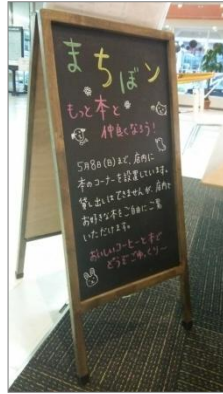 まちぼん
もっと本と
仲良くなろう!
5月8日(日)まで、店内に
本のコーナーを設置しています。
貸し出しはできませんが、店内で
お好きな本をご自由にご覧
いただけます。
おいしいコーヒーと本で
どうぞごゆっくり〜